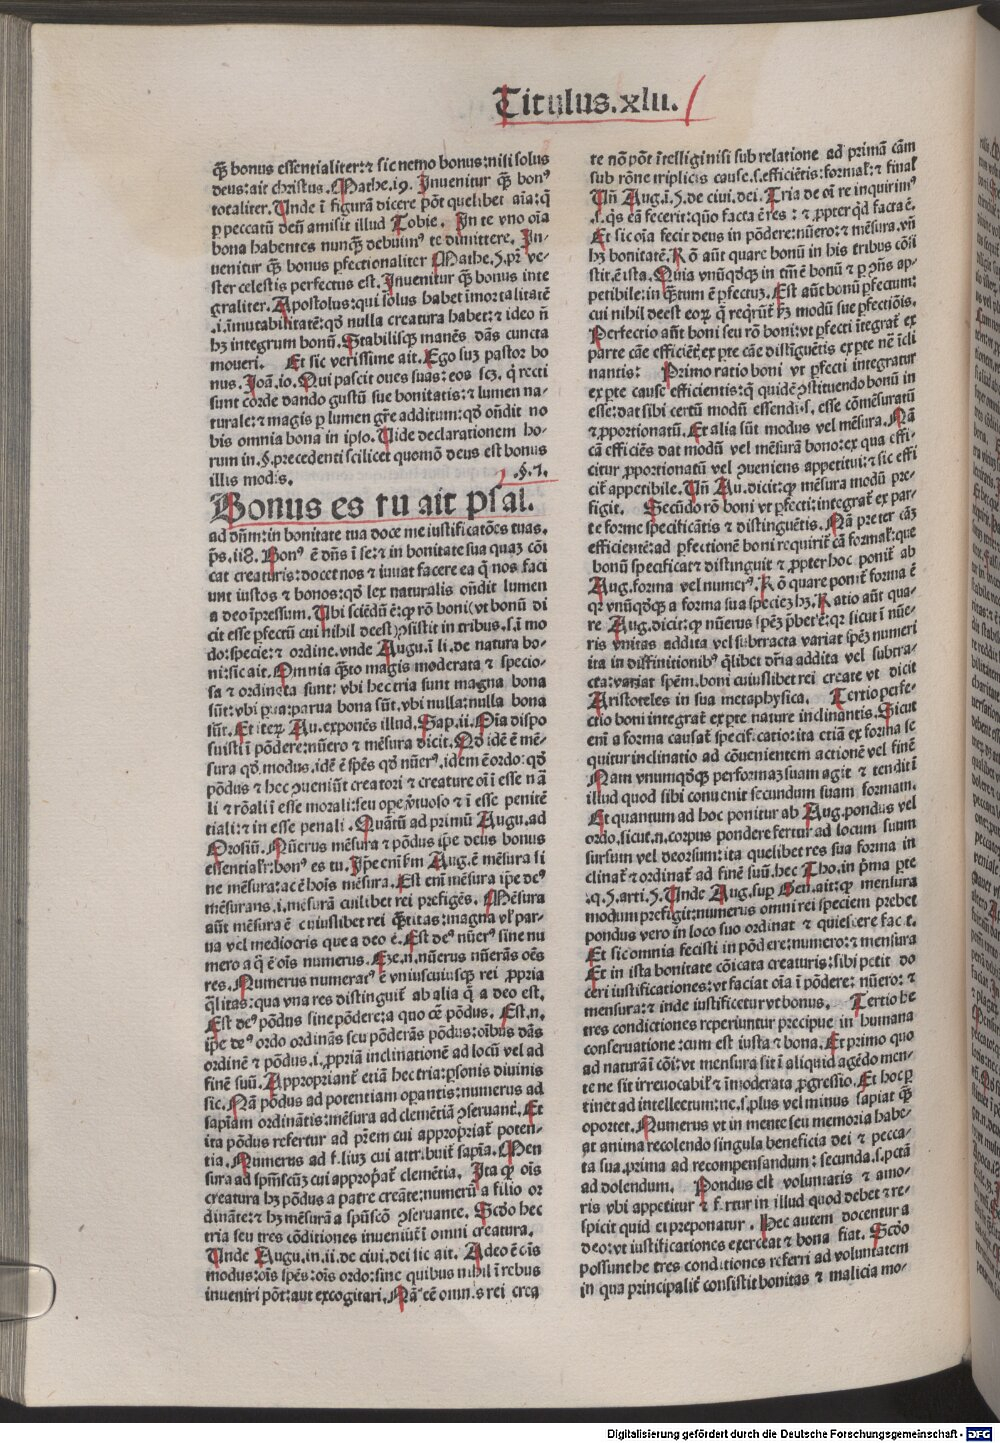 Titulus.xlii.
q̄ꝫ bonus essentialiter:⁊ sic nemo bonus:nisi solus
deus:ait christus.Mathe.19. Inuenitur q̄ꝫ bonꝰ
totaliter.Unde ī figurā dicere pōt quelibet aīa:q̄
ꝑ peccatū deū amisit illud Tobie. In te vno oīa
bona habentes nunq̄ꝫ debuimꝰ te dimittere. In-
uenitur q̄ꝫ bonus ꝑfectionaliter Mathe.5.pr̄ ve-
ster celestis perfectus est. Inuenitur q̄ꝫ bonus inte
graliter.Apostolus:qui solus habet īmortalitatē
.i.īmutabilitatē:qđ nulla creatura habet:⁊ ideo n̄
hꝫ integrum bonū.Stabilisqꝫ manēs dās cuncta
moueri. Et sic verissime ait.Ego suꝫ pastor bo
nus.Ioā.10.Qui pascit oues suas:eos scꝫ. q̄ recti
sunt corde dando gustū sue bonitatis:⁊ lumen na-
turale:⁊ magis ꝑ lumen gr̄e additum:qđ on̄dit no
bis omnia bona in ipso.Uide declarationem ho-
rum in.§.precedenti scilicet quomō deus est bonus
illis modis.
.§.1.
Bonus es tu ait psal.
ad dn̄m:in bonitate tua doce me iustificatōes tuas.
p̄s.118.Bonꝰ ē dn̄s ī se:⁊ in bonitate sua quaꝫ cōi
cat creaturis:docet nos ⁊ iuuat facere ea q̄ nos faci
unt iustos ⁊ bonos:qđ lex naturalis on̄dit lumen
a deo īpressum.Ubi sciēdū ē:qꝫ rō boni(vt bonū di
cit esse ꝑfectū cui nihil deest)ꝯsistit in tribus.s.ī mo
do:specie:⁊ ordine.vnde Augu.ī li.de natura bo-
ni:sic ait.Omnia q̄ꝫto magis moderata ⁊ specio-
sa ⁊ ordinata sunt: vbi hec tria sunt magna bona
sūt:vbi ꝑua:parua bona sūt.vbi nulla:nulla bona
sūt.Et iteꝝ Au.exponēs illud.Sap.ii.Oīa dispo
suisti ī pōdere:nūero ⁊ mēsura dicit.Qđ idē ē mē-
sura qđ modus.idē ē spēs qđ nūerꝰ.idem ē ordo:qđ
pōdus ⁊ hec ꝯueniūt creatori ⁊ creature oī ī esse nā
li ⁊ rōali ī esse morali:seu ope v̄tuoso ⁊ ī esse penitē
tiali:⁊ in esse penali.Quātū ad primū Augu.ad
Orosiū. Nūerus mēsura ⁊ pōdus ip̄e deus bonus
essentialr̄:bonꝰ es tu.Ip̄e enī fm Aug.ē mēsura si
ne mēsura:ac ē hoīs mēsura.Est enī mēsura ip̄e deꝰ
mēsurans.i.mēsurā cuilibet rei prefigēs. Mēsura
aūt mēsura ē cuiuslibet rei q̄ꝫtitas:magna vl̓ par-
ua vel mediocris que a deo ē.Est deꝰ nūerꝰ sine nu
mero a q̄ ē oīs numerus.Eze.n.nūerus nūerās oēs
res.Numerus numeratꝰ ē vniuscuiusqꝫ rei ꝓpria
q̄litas:qua vna res distinguit̄ ab alia q̄ a deo est.
Est deꝰ pōdus sine pōdere:a quo cē pōdus. Est.n.
ip̄e deꝰ ordo ordināns seu pōderās pōdus:oībus dās
ordinē ⁊ pōdus.i.ꝓpriā inclinationē ad locū vel ad
finē suū.Appropriant̄ etiā hec tria:ꝑsonis diuinis
sic.Nā pōdus ad potentiam oꝑantis:numerus ad
sapīam ordinātis:mēsura ad clemētiā ꝯseruant̄. Et
ita pōdus refertur ad pr̄em cui appropriat̄ poten-
tia.Numerus ad f.liuꝫ cui attribuit̄ sapīa. Men
sura ad spm̄scūꝫ cui appropriat̄ clemētia. Ita qꝫ oīs
creatura hꝫ pōdus a patre creāte:numerū a filio or
dināte:⁊ hꝫ mēsurā a spūscō ꝯseruante. Scđo hec
tria seu tres cōditiones inueniūt̄ ī omni creatura.
Unde Augu.in.ii.de ciui.dei sic ait. Adeo ē oīs
modus:oīs spēs:oīs ordo:sine quibus nihil ī rebus
inueniri pōt:aut excogitari.Nā cē omnis rei crea
te nō pōt ītelligi nisi sub relatione ad primā cām
sub rōne triplicis cause.s.efficiētis:formal̄:⁊ final̄
Un̄ Aug.ī.5.de ciui.dei.Tria de oī re inquirimꝰ
.s.q̄s eā fecerit:quō facta ē res:⁊ ꝓpter qđ facta ē.
Et sic oīa fecit deus in pōdere:nūero:⁊ mēsura.vn̄
hꝫ bonitatē.Rō aūt quare bonū in his tribus cōsi
stit.ē ista.Quia vnūqđqꝫ in tm̄ ē bonū ⁊ ꝑ ꝯn̄s ap-
petibile:in q̄ꝫtum ē ꝑfectuꝫ.Est aūt bonū ꝑfectum:
cui nihil deest eoꝝ q̄ reqr̄ūt̄ fꝫ modū sue ꝑfectiōis.
Perfectio aūt boni seu rō boni:vt ꝑfecti īte­grat̄ ex
parte cāe efficiēt̄:ex pte cāe distīguētis ex pte nē īcli
nantis: Primo ratio boni vt ꝑfecti integratur
ex pte cause efficientis:q̄ quidē ꝯstituendo bonū in
esse:dat sibi certū modū essendi:.s.esse cōmēsuratū
⁊ ꝓportionatū.Et alia sūt modus vel mēsura.Nā
cā efficiēs dat modū vel mēsurā bono:ex qua effi-
citur ꝓportionatū vel ꝯueniens appetitui:⁊ sic effi
cit̄ appetibile.Un̄ Au.dicit:qꝫ mēsura modū pre-
figit. Secūdo rō boni vt ꝑfecti:integrat̄ ex par-
te forme specificātis ⁊ distinguētis.Nā preter cāꝫ
efficientē:ad ꝑfectionē boni requirit̄ cā formal̄:que
bonū specificat ⁊ distinguit ⁊ ꝓpter hoc ponit̄ ab
Aug.forma vel numerꝰ.Rō quare ponit̄ forma ē
qr vnūqđqꝫ a forma sua specieꝫ hꝫ.Ratio aūt qua-
re Aug.dicit:qꝫ nūerus spēꝫ p̄bere:qr sicut ī nūe-
ris vnitas addita vel subtracta variat spēꝫ numeri
ita in diffinitionibꝰ q̄libet dr̄ia addita vel subtra-
cta:variat spēm.boni cuiuslibet rei create vt dicit
Aristoteles in sua metaphysica. Tertio perfe-
ctio boni integrat̄ ex pte nature inclinantis.Sicut
enī a forma causat̄ specificatio:ita etiā ex forma se
quitur inclinatio ad cōuenientem actionē vel finē
Nam vnumqđqꝫ per formaꝫ suam agit ⁊ tendit ī
illud quod sibi conuenit secundum suam formam.
Et quantum ad hoc ponitur ab Aug.pondus vel
ordo.sicut.n.corpus pondere fertur ad locum suum
sursum vel deorsum:ita quelibet res sua forma in
clinat̄ ⁊ ordinat̄ ad finē suū.hec Tho.in p̄ma pte
.q.5.arti.5.Unde Aug.suꝑ Gen.ait:qꝫ mensura
modum prefigit:numerus omni rei speciem prebet
pondus vero in loco suo ordinat ⁊ quiescere facit.
Et sic omnia fecisti in pōdere:numero:⁊ mensura
Et in ista bonitate cōicata creaturis:sibi petit do
ceri iustificationes:vt faciat oīa ī pōdere: nūero: ⁊
mensura:⁊ inde iustificetur vt bonus. Tertio he
tres condictiones reperiuntur precipue in humana
conseruatione:cum est iusta ⁊ bona.Et primo quo
ad naturā ī cōi:vt mensura sit ī aliquid agēdo men-
te ne sit irreuocabil̄ ⁊ īmoderata ꝓgressio.Et hoc ꝑ
tinet ad intellectum:ne.s.plus vel minus sapiat q̄ꝫ
oportet.Numerus vt in mente seu memoria habe-
at anima recolendo singula beneficia dei ⁊ pecca-
ta sua.prima ad recompensandum:secunda.s.pctā
ad dolendum. Pondus est voluntatis ⁊ amo-
ris vbi appetitur ⁊ fertur in illud quod debet ⁊ re-
spicit quid ei preponatur.Hec autem docentur a
deo:vt iustificationes exerceat ⁊ bona fiat. Scđo
possunt he tres conditiones referri ad voluntatem
in qua principalit̄ consistit bonitas ⁊ malicia mo-
Digitalisierung gefördert durch die Deutsche Forschungsgemeinschaft - DFG